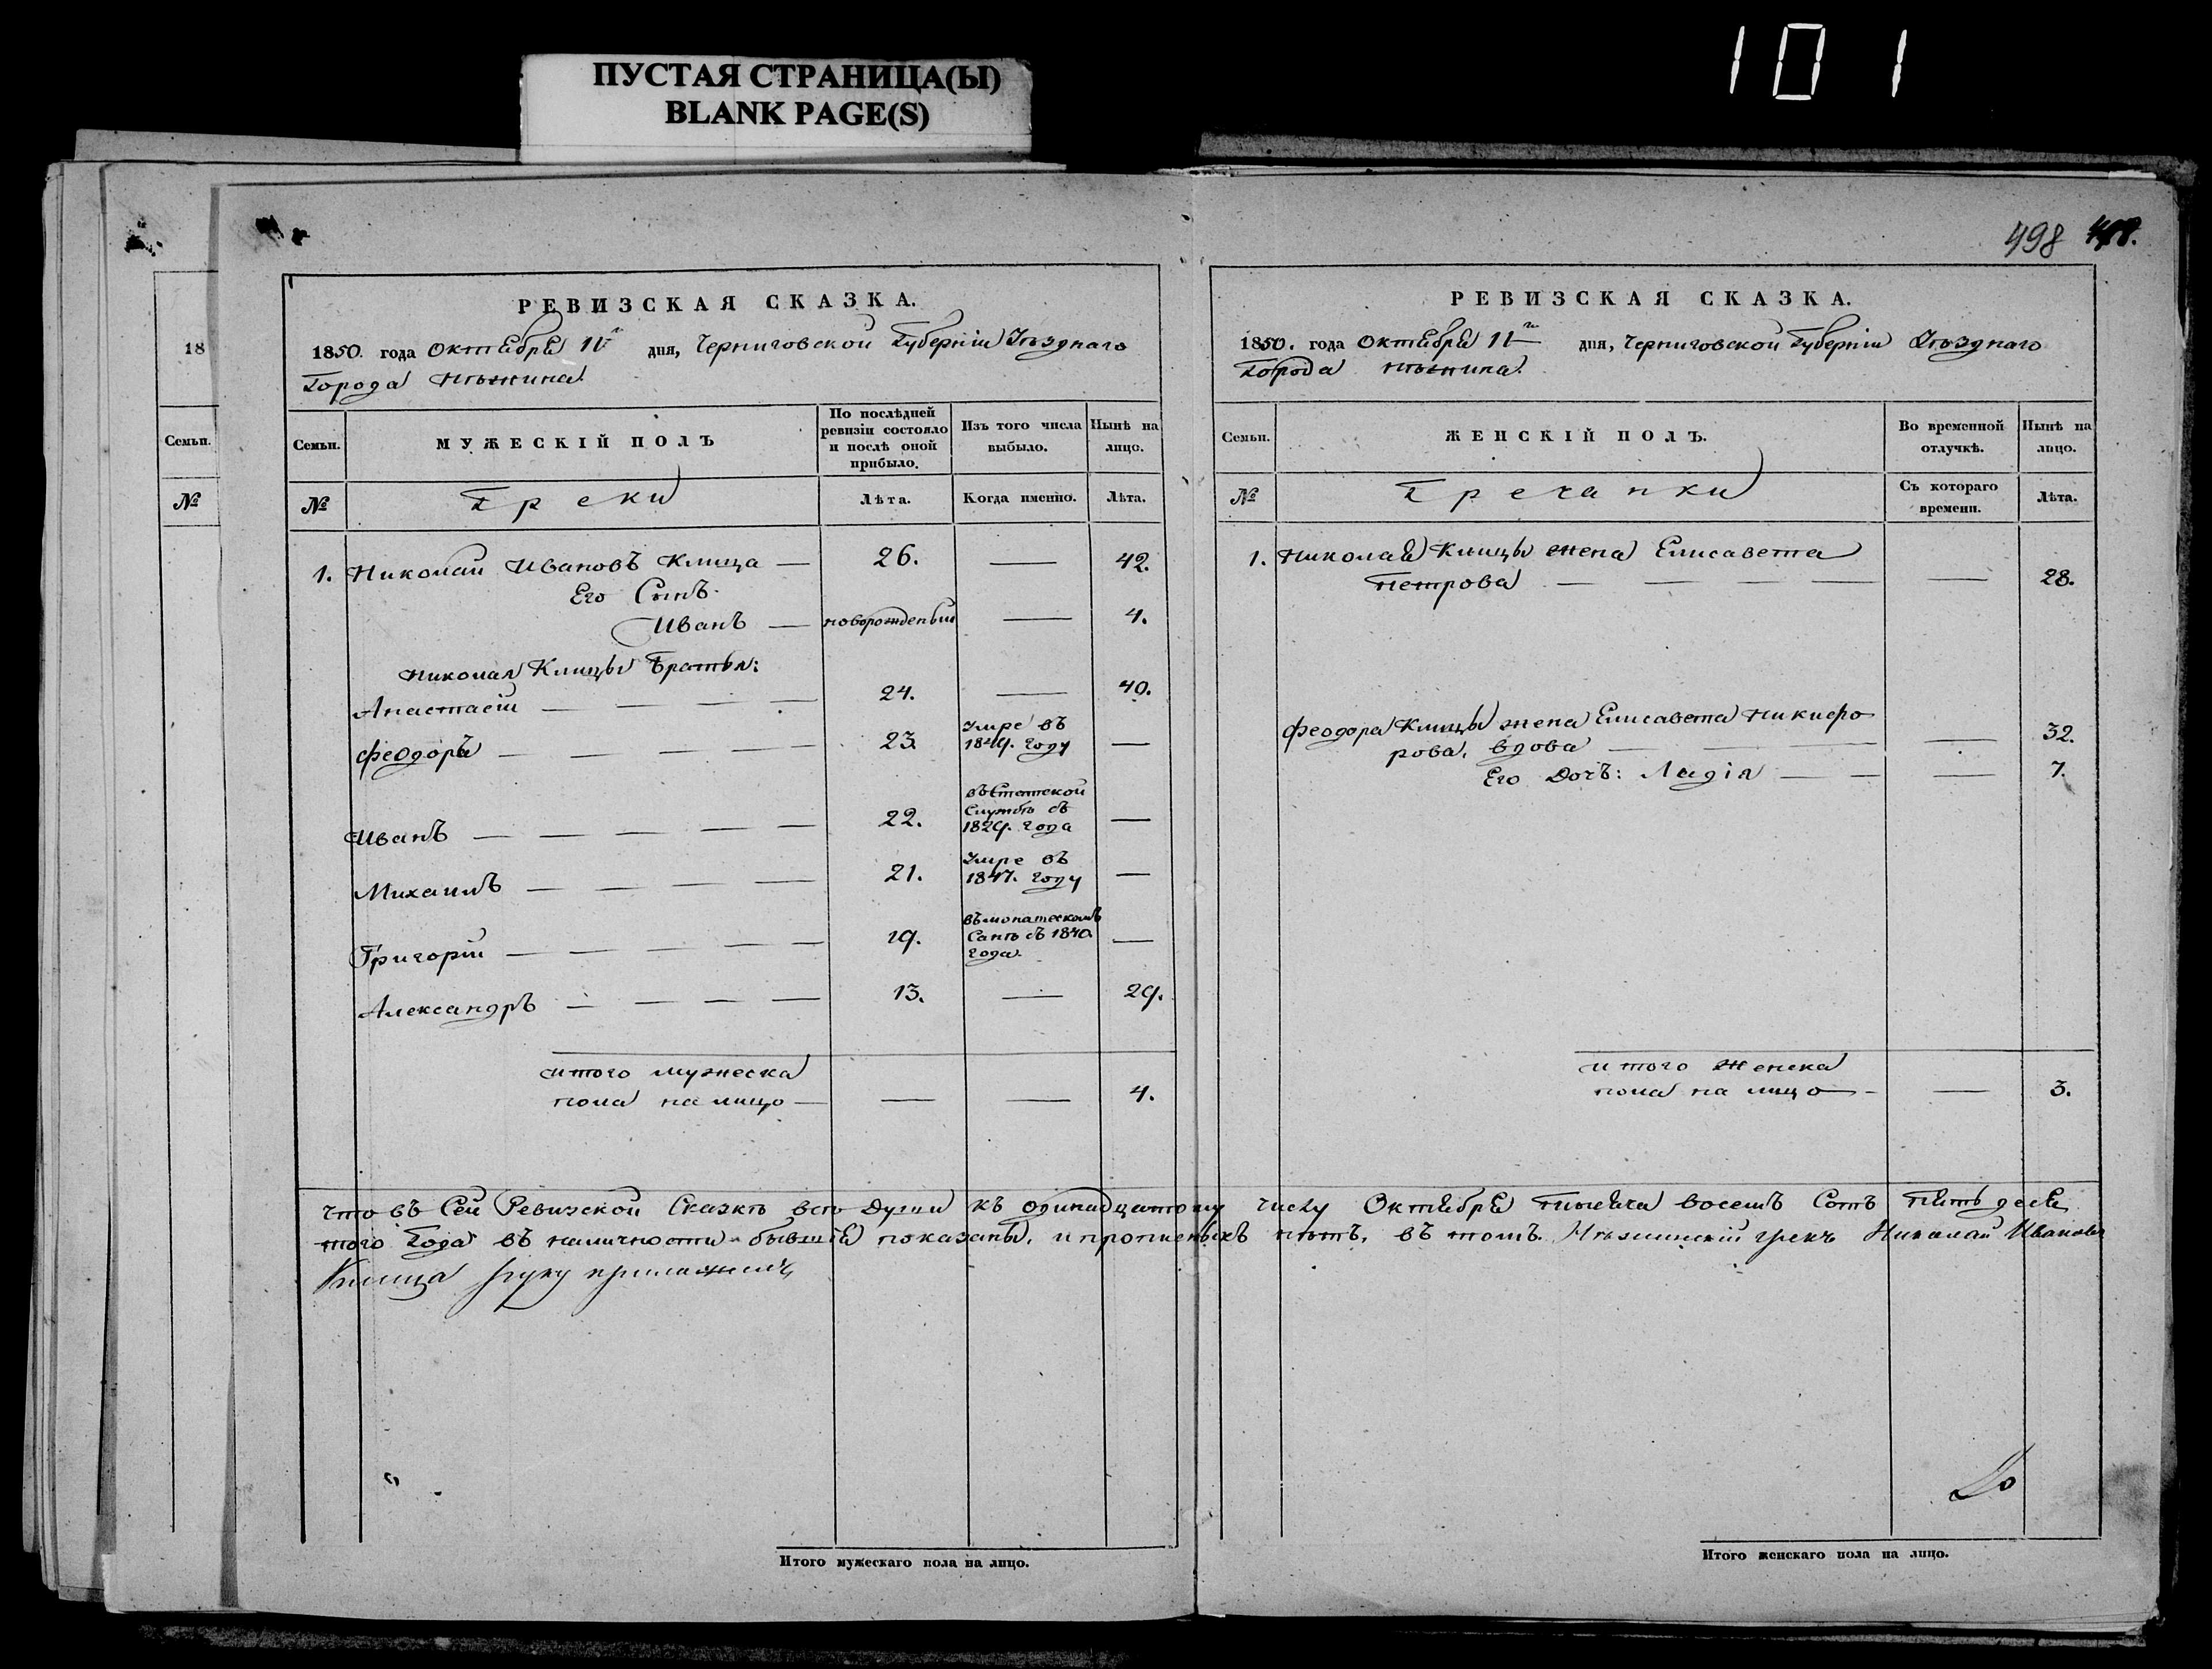 ПУСТАЯ СТРАНИЦА(Ы)
BLANK PAGE(S)
101
498
18
Семьи.
№
РЕВИЗСКАЯ СКАЗКА.
1850. года Октября 11го дня, Черниговской Губерніи Уѣзднаго
Города Нѣжина.
Семьи.
МУЖЕСКІЙ ПОЛЪ
По послѣдней ревизіи состояло и послѣ оной прибыло.
Изъ того числа выбыло.
Нынѣ на лицо.
№
Греки
Лѣта.
Когда именно.
Лѣта.
1. Николай Ивановъ Клица — 26. — 42.
Его Сынъ.
Иванъ — новорожденый — 4.
Николая Клицы Братья:
Анастасій — 24. — 40.
Феодоръ — 23. Умре въ 1849. году —
Иванъ — 22. въ Статской Службѣ съ 1829. года —
Михаилъ — 21. Умре въ 1847. году —
Григорій — 19. въ монашескомъ Санѣ съ 1840. года. —
Александръ — 13. — 29.
итого мужеска
пола на лицо — — — 4.
РЕВИЗСКАЯ СКАЗКА.
1850. года Октября 11го дня, Черниговской Губерніи Уѣзднаго
Города Нѣжина.
Семьи.
ЖЕНСКІЙ ПОЛЪ.
Во временной отлучкѣ.
Нынѣ на лицо.
№
Гречанки
Съ котораго времени.
Лѣта.
1. Николая Клицы жена Елисавета
Петрова — — 28.
Феодора Клицы жена Елисавета Никифо
рова, вдова — — 32.
Его Дочь: Лидія — — 7.
итого Женска
пола на лицо — — 3.
что въ Сей Ревизской Сказкѣ всѣ Души къ одинадцатому числу Октября тысяча восемъ Сотъ пять деся
того Года въ наличности бывшія показаны, и прописныхъ нѣтъ, въ томъ. Нѣжинскій грекъ Николай Ивановъ
Клица руку приложилъ
Итого мужескаго пола на лицо.
Итого женскаго пола на лицо.